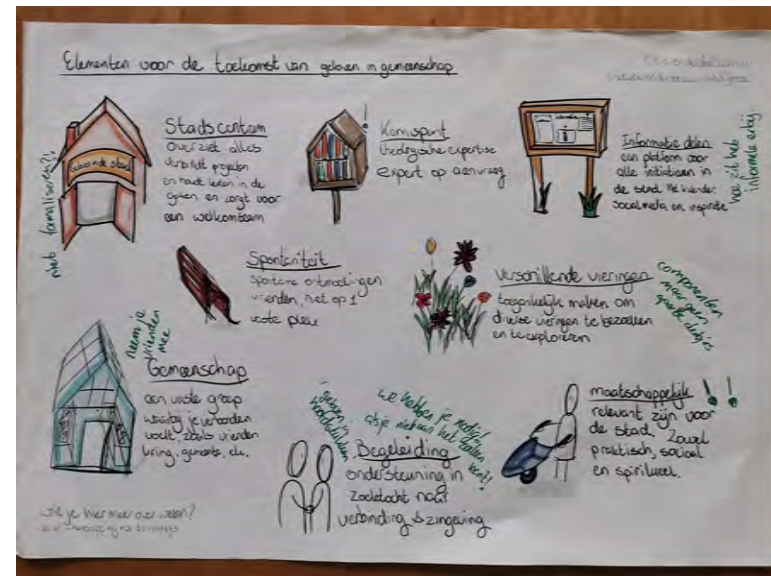 Elementen voor de toekomst van geloven in gemeenschap
Stadsconteam
Overziet alles
verbindt projecten
en houdt leden in de
gaten en zorgt voor
een welkomteam
niet formaliseren?!
stad
!
Kennispunt
theologische expertise
expert op aanvraag
Informatie delen
een platform voor
alle initiatieven in
de stad. Met kalender,
social media en inspiratie
hoe zit het
informele erbij.
Spontaniteit
spontane ontmoetingen
vrienden, niet op 1
vaste plek
Verschillende vieringen
toegankelijk maken om
diverse vieringen te bezoeken
en te exploreren
componenten
maar geen
neem je
vrienden
mee
Gemeenschap
een vaste groep
waarbij je verbonden
voelt, zoals vrienden
kring, gemeente, etc.
geloven in
we hebben je nodig!
als je niet aan het zoeken
bent!
Begeleiding
ondersteuning in
zoektocht naar
verbinding & zingeving
maatschappelijk !!
relevant zijn voor
de stad. Zowel
praktisch, sociaal
en spiritueel.
wil je hier meer over weten?